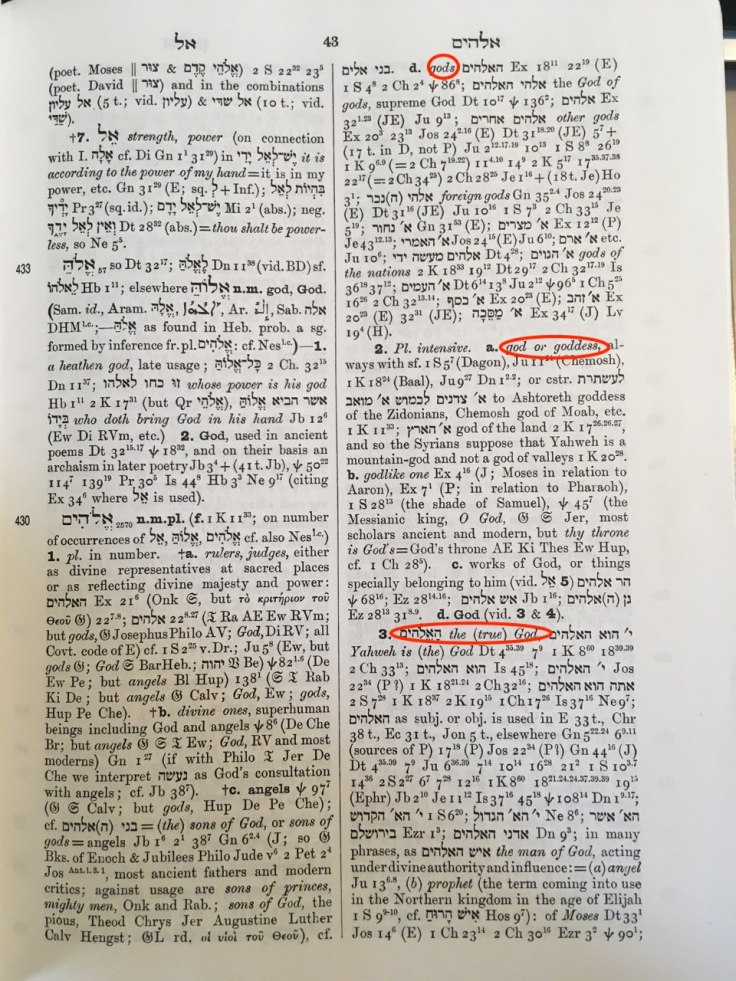 אל 43 אלהים
(poet. Moses ‖ צוּר & אֱלֹהֵי קֶדֶם) 2 S 22³² 23⁵
(poet. David ‖ צוּר) and in the combinations
אל עליון (5 t.; vid. עליון) & אל שדי (10 t.; vid.
שַׁדַּי).
†7. אֵל strength, power (on connection
with I. אָלָה cf. Di Gn 1¹ 31²⁹) in יֶשׁ־לְאֵל יָדִי it is
according to the power of my hand=it is in my
power, etc. Gn 31²⁹ (E; sq. לְ + Inf.); בִּהְיוֹת לְאֵל
יָדְךָ Pr 3²⁷ (sq. id.); יֶשׁ־לְאֵל יָדָם Mi 2¹ (abs.); neg.
וְאֵין לְאֵל יָדֶךָ Dt 28³² (abs.)=thou shalt be power-
less, so Ne 5⁵.
433 אֱלֹהַּ ₅₇ so Dt 32¹⁷; לֶאֱלֹהַּ Dn 11³⁸ (vid. BD) sf.
לֵאלֹהוֹ Hb 1¹¹; elsewhere אֱלוֹהַּ n.m. god, God.
(Sam. id., Aram. אֱלָהּ, Ar. Sab. אלה
DHM¹·ᶜ·;—אֱלֹהַּ as found in Heb. prob. a sg.
formed by inference fr. pl. אֱלֹהִים: cf. Nes¹·ᶜ·)—1.
a heathen god, late usage; כָּל־אֱלוֹהַּ 2 Ch. 32¹⁵
Dn 11³⁷; זו כחו לאלהו whose power is his god
Hb 1¹¹ 2 K 17³¹ (but Qr אֱלֹהֵי), אשר הביא אֱלוֹהַּ
בְּיָדוֹ who doth bring God in his hand Jb 12⁶
(Ew Di RVm, etc.) 2. God, used in ancient
poems Dt 32¹⁵·¹⁷ ψ 18³², and on their basis an
archaism in later poetry Jb 3⁴ + (41 t. Jb), ψ 50²²
114⁷ 139¹⁹ Pr 30⁵ Is 44⁸ Hb 3³ Ne 9¹⁷ (citing
Ex 34⁶ where אֵל is used).
430 אֱלֹהִים ₂₅₇₀ n.m.pl. (f. 1 K 11³³; on number
of occurrences of אֵל, אֱלוֹהַּ, אֱלֹהִים cf. also Nes¹·ᶜ·)
1. pl. in number. †a. rulers, judges, either
as divine representatives at sacred places
or as reflecting divine majesty and power:
האלהים Ex 21⁶ (Onk 𝔖, but τὸ κριτήριον τοῦ
Θεοῦ 𝔊) 22⁷·⁸; אלהים 22⁸·²⁷ (𝔗 Ra AE Ew RVm;
but gods, 𝔊 Josephus Philo AV; God, Di RV; all
Covt. code of E) cf. 1 S 2²⁵ v. Dr.; Ju 5⁸ (Ew, but
gods 𝔊; God 𝔖 BarHeb.; יהוה 𝔙 Be) ψ 82¹·⁶ (De
Ew Pe; but angels Bl Hup) 138¹ (𝔖 𝔗 Rab
Ki De; but angels 𝔊 Calv; God, Ew; gods,
Hup Pe Che). †b. divine ones, superhuman
beings including God and angels ψ 8⁶ (De Che
Br; but angels 𝔊 𝔖 𝔗 Ew; God, RV and most
moderns) Gn 1²⁷ (if with Philo 𝔗 Jer De
Che we interpret נעשה as God's consultation
with angels; cf. Jb 38⁷). †c. angels ψ 97⁷
(𝔊 𝔖 Calv; but gods, Hup De Pe Che);
cf. בני (ה)אלהים=(the) sons of God, or sons of
gods=angels Jb 1⁶ 2¹ 38⁷ Gn 6²·⁴ (J; so 𝔊
Bks. of Enoch & Jubilees Philo Jude v⁶ 2 Pet 2⁴
Jos Ant. i. 3, 1, most ancient fathers and modern
critics; against usage are sons of princes,
mighty men, Onk and Rab.; sons of God, the
pious, Theod Chrys Jer Augustine Luther
Calv Hengst; 𝔊L rd. οἱ υἱοὶ τοῦ Θεοῦ), cf.
בני אלים. d. gods האלהים Ex 18¹¹ 22¹⁹ (E)
1 S 4⁸ 2 Ch 2⁴ ψ 86⁸; אלהי האלהים the God of
gods, supreme God Dt 10¹⁷ ψ 136²; אלהים Ex
32¹·²³ (JE) Ju 9¹³; אלהים אחרים other gods
Ex 20³ 23¹³ Jos 24²·¹⁶ (E) Dt 31¹⁸·²⁰ (JE) 5⁷ +
(17 t. in D, not P) Ju 2¹²·¹⁷·¹⁹ 10¹³ 1 S 8⁸ 26¹⁹
1 K 9⁶·⁹ (= 2 Ch 7¹⁹·²²) 11⁴·¹⁰ 14⁹ 2 K 5¹⁷ 17³⁵·³⁷·³⁸
22¹⁷ (=2 Ch 34²⁵) 2 Ch 28²⁵ Je 1¹⁶ + (18 t. Je) Ho
3¹; אלהי (ה)נכר foreign gods Gn 35²·⁴ Jos 24²⁰·²³
(E) Dt 31¹⁶ (JE) Ju 10¹⁶ 1 S 7³ 2 Ch 33¹⁵ Je
5¹⁹; א׳ נחור Gn 31⁵³ (E); א׳ מצרים Ex 12¹² (P)
Je 43¹²·¹³; א׳ האמרי Jos 24¹⁵ (E) Ju 6¹⁰; א׳ ארם etc.
Ju 10⁶; אלהים מעשה ידי Dt 4²⁸; א׳ הגוים gods of
the nations 2 K 18³³ 19¹² Dt 29¹⁷ 2 Ch 32¹⁷·¹⁹ Is
36¹⁸ 37¹²; א׳ העמים Dt 6¹⁴ 13⁸ Ju 2¹² ψ 96⁵ 1 Ch 5²⁵
16²⁶ 2 Ch 32¹³·¹⁴; א׳ כסף Ex 20²³ (E); א׳ זהב Ex
20²³ (E) 32³¹ (JE); א׳ מַסֵּכָה Ex 34¹⁷ (J) Lv
19⁴ (H).
2. Pl. intensive. a. god or goddess, al-
ways with sf. 1 S 5⁷ (Dagon), Ju 11²⁴ (Chemosh),
1 K 18²⁴ (Baal), Ju 9²⁷ Dn 1²·²; or cstr. לעשתרת
א׳ צדנים לכמוש א׳ מואב to Ashtoreth goddess
of the Zidonians, Chemosh god of Moab, etc.
1 K 11³³; א׳ הארץ god of the land 2 K 17²⁶·²⁶·²⁷,
and so the Syrians suppose that Yahweh is a
mountain-god and not a god of valleys 1 K 20²⁸.
b. godlike one Ex 4¹⁶ (J; Moses in relation to
Aaron), Ex 7¹ (P; in relation to Pharaoh),
1 S 28¹³ (the shade of Samuel), ψ 45⁷ (the
Messianic king, O God, 𝔊 𝔖 Jer, most
scholars ancient and modern, but thy throne
is God's=God's throne AE Ki Thes Ew Hup,
cf. 1 Ch 28⁵). c. works of God, or things
specially belonging to him (vid. אֵל 5) הר אלהים
ψ 68¹⁶; Ez 28¹⁴·¹⁶; אש אלהים Jb 1¹⁶; גן (ה)אלהים
Ez 28¹³ 31⁸·⁹. d. God (vid. 3 & 4).
3. הָאֱלֹהִים the (true) God י׳ הוא האלהים
Yahweh is (the) God Dt 4³⁵·³⁹ 7⁹ 1 K 8⁶⁰ 18³⁹·³⁹
2 Ch 33¹³; הוא האלהים Is 45¹⁸; י׳ אלהים Jos
22³⁴ (P?) 1 K 18²¹·²⁴ 2 Ch 32¹⁶; אתה הוא האלהים
2 S 7²⁸ 1 K 18³⁷ 2 K 19¹⁵ 1 Ch 17²⁶ Is 37¹⁶ Ne 9⁷;
האלהים as subj. or obj. is used in E 33 t., Chr
38 t., Ec 31 t., Jon 5 t., elsewhere Gn 5²²·²⁴ 6⁹·¹¹
(sources of P) 17¹⁸ (P) Jos 22³⁴ (P?) Gn 44¹⁶ (J)
Dt 4³⁵·³⁹ 7⁹ Ju 6³⁶·³⁹ 7¹⁴ 10¹⁴ 16²⁸ 21² 1 S 10³·⁷
14³⁶ 2 S 2²⁷ 6⁷ 7²⁸ 12¹⁶ 1 K 8⁶⁰ 18²¹·²⁴·²⁴·³⁷·³⁹·³⁹ 19¹⁵
(Ephr) Jb 2¹⁰ Je 11¹² Is 37¹⁶ 45¹⁸ ψ 108¹⁴ Dn 1⁹·¹⁷;
י׳ הא׳ הקדוש 1 S 6²⁰; י׳ הא׳ הגדול Ne 8⁶; הא׳ אשר
בירושלם Ezr 1³; אדני האלהים Dn 9³; in many
phrases, as איש האלהים the man of God, acting
under divine authority and influence:=(a) angel
Ju 13⁶·⁸, (b) prophet (the term coming into use
in the Northern kingdom in the age of Elijah
1 S 9⁹⁻¹⁰, cf. אִישׁ הָרוּחַ Hos 9⁷): of Moses Dt 33¹
Jos 14⁶ (E) 1 Ch 23¹⁴ 2 Ch 30¹⁶ Ezr 3² ψ 90¹;